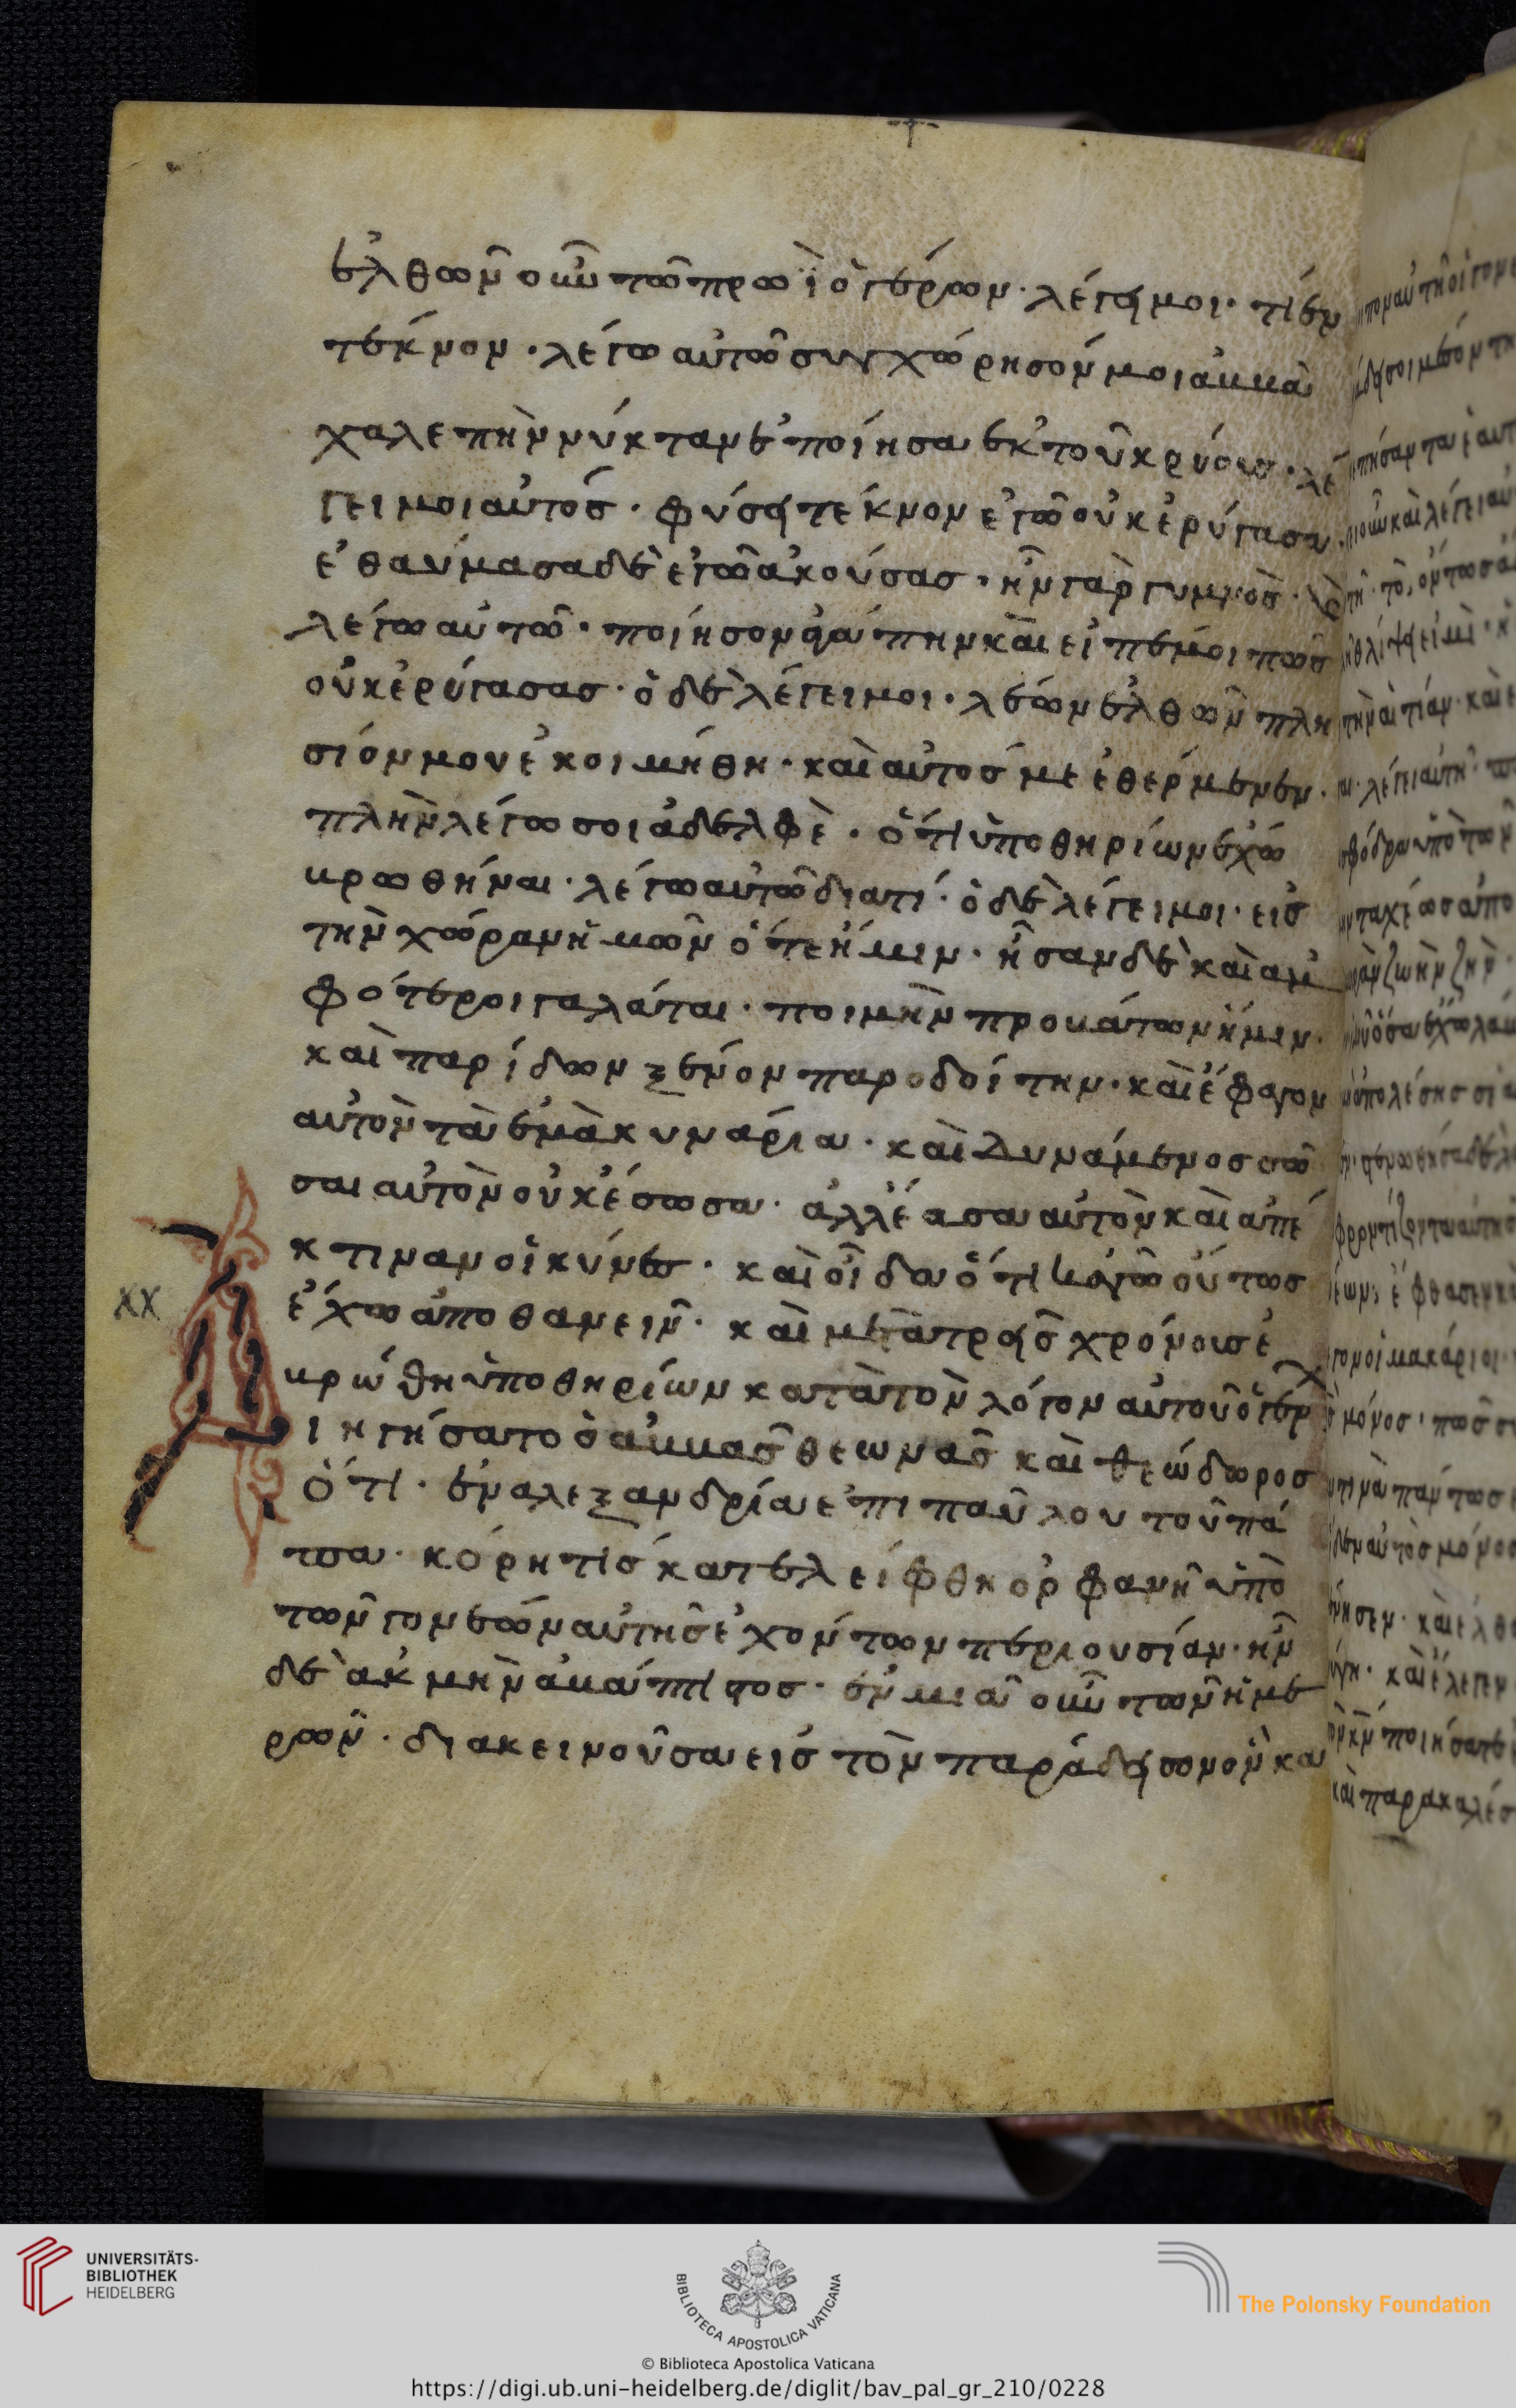 ἐλθὼν οὖν τῶ πρωῒ ὁ γέρων· λέγει μοι· τί ἐν
τέκνον· λέγω αὐτῶ συγχώρησόν μοι ἀββᾶ
χαλεπὴν νύκταν ἐποίησα ἐκ τοῦ κρύους· λέ
γει μοι αὐτός· φύσει τέκνον ἐγὼ οὐκ ἐρύγασα·
ἐθαύμασα δὲ ἐγὼ ἀκούσας· ἦν γὰρ γυμνὸς·
λέγω αὐτῶ· ποίησον ἀγάπην καὶ εἰπέ μοι πῶς
οὐκ ἐρύγασας· ὁ δὲ λέγει μοι· λέων ἐλθὼν πλη
σίον μου ἐκοιμήθη· καὶ αὐτός με ἐθέρμενεν·
πλὴν λέγω σοι ἀδελφὲ· ὅτι ὑπὸ θηρίων ἔχω
βρωθῆναι· λέγω αὐτῶ διατί· ὁ δὲ λέγει μοι· εἰς
τὴν χώραν ἡμῶν ὅτε ἤμην· ἦσαν δὲ καὶ ἀμ
φότεροι γαλάται· ποιμὴν προβάτων ἤμην·
καὶ παρίδων ξένον παροδίτην· καὶ ἔφαγον
αὐτὸν τὰ ἐμὰ κυνάρια· καὶ δυνάμενος σῶ
σαι αὐτὸν οὐκ ἔσωσα· ἀλλ' ἔασα αὐτὸν καὶ ἀπέ
κτιναν οἱ κύνες· καὶ οἶδα ὅτι κἀγὼ οὕτως
ἔχω ἀποθανεῖν· καὶ μετὰ τρεῖς χρόνους ἐ
βρώθη ὑπὸ θηρίων κατὰ τὸν λόγον αὐτοῦ ὁ γέρ
XX
Διηγήσατο ὁ ἀββᾶς θεωνᾶς καὶ θεόδωρος
ὅτι· ἐν ἀλεξανδρία ἐπὶ παύλου τοῦ πά
πα· κόρη τίς κατελείφθη ὀρφανὴ ὑπὸ
τῶν γονέων αὐτῆς ἐχόντων περιουσίαν· ἦν
δὲ ἀκμὴν ἀβάπτιστος· ἐν μιᾶ οὖν τῶν ἡμε
ρῶν· διακεινοῦσα εἰς τὸν παράδεισον ὃν κα
UNIVERSITÄTS-
BIBLIOTHEK
HEIDELBERG
BIBLIOTECA APOSTOLICA VATICANA
The Polonsky Foundation
© Biblioteca Apostolica Vaticana
https://digi.ub.uni-heidelberg.de/diglit/bav_pal_gr_210/0228